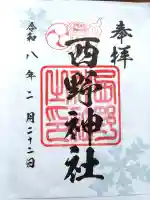 奉拝
西野神社
令和八年二月二十二日